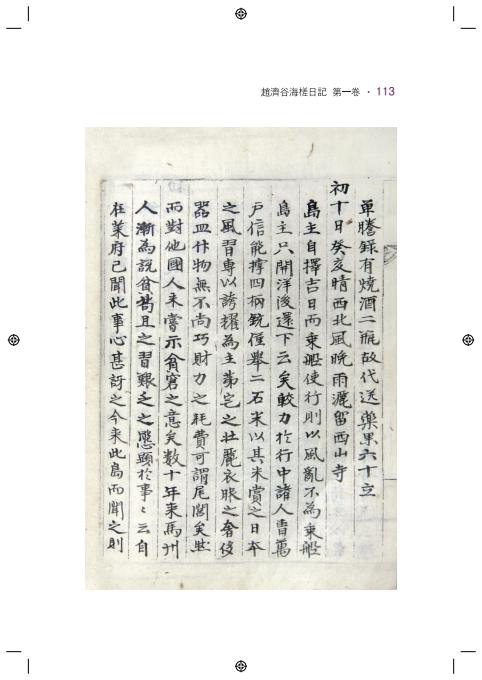 趙濟谷海槎日記 第一巻 · 113
單謄錄有燒酒二甁故代送藥果六十立
初十日癸亥晴西北風晩雨灑留西山寺
島主自擇吉日而乘船使行則以風亂不爲乘船
島主只開洋後還下云矣較力於行中諸人曺萬
戶信能擧四柄銃僅擧二石米以其米賞之日本
之風習專以誇耀爲主第宅之壯麗衣服之奢侈
器皿什物無不尙巧財力之耗費可謂尾閭矣且
而對他國人未嘗示貧窘之意矣數十年來馬州
人漸爲說貧苟且之習艱乏之態顯於事〻云自
在萊府已聞此事心甚訝之今來此島而聞之則